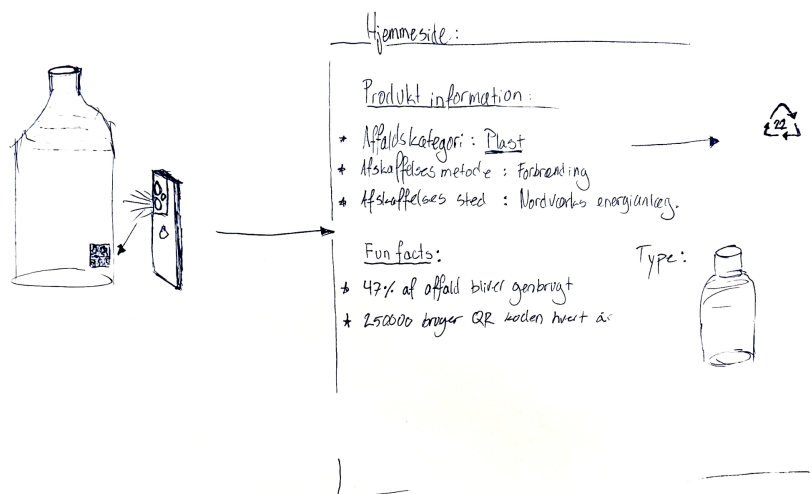 Hjemmeside:
Produkt information:
* Affaldskategori: Plast
22
* Afskaffelses metode: Forbrænding
* Afskaffelses sted: Nordværks energianlæg.
Fun facts:
Type:
* 47% af affald bliver genbrugt
* 250000 bruger QR koden hvert år